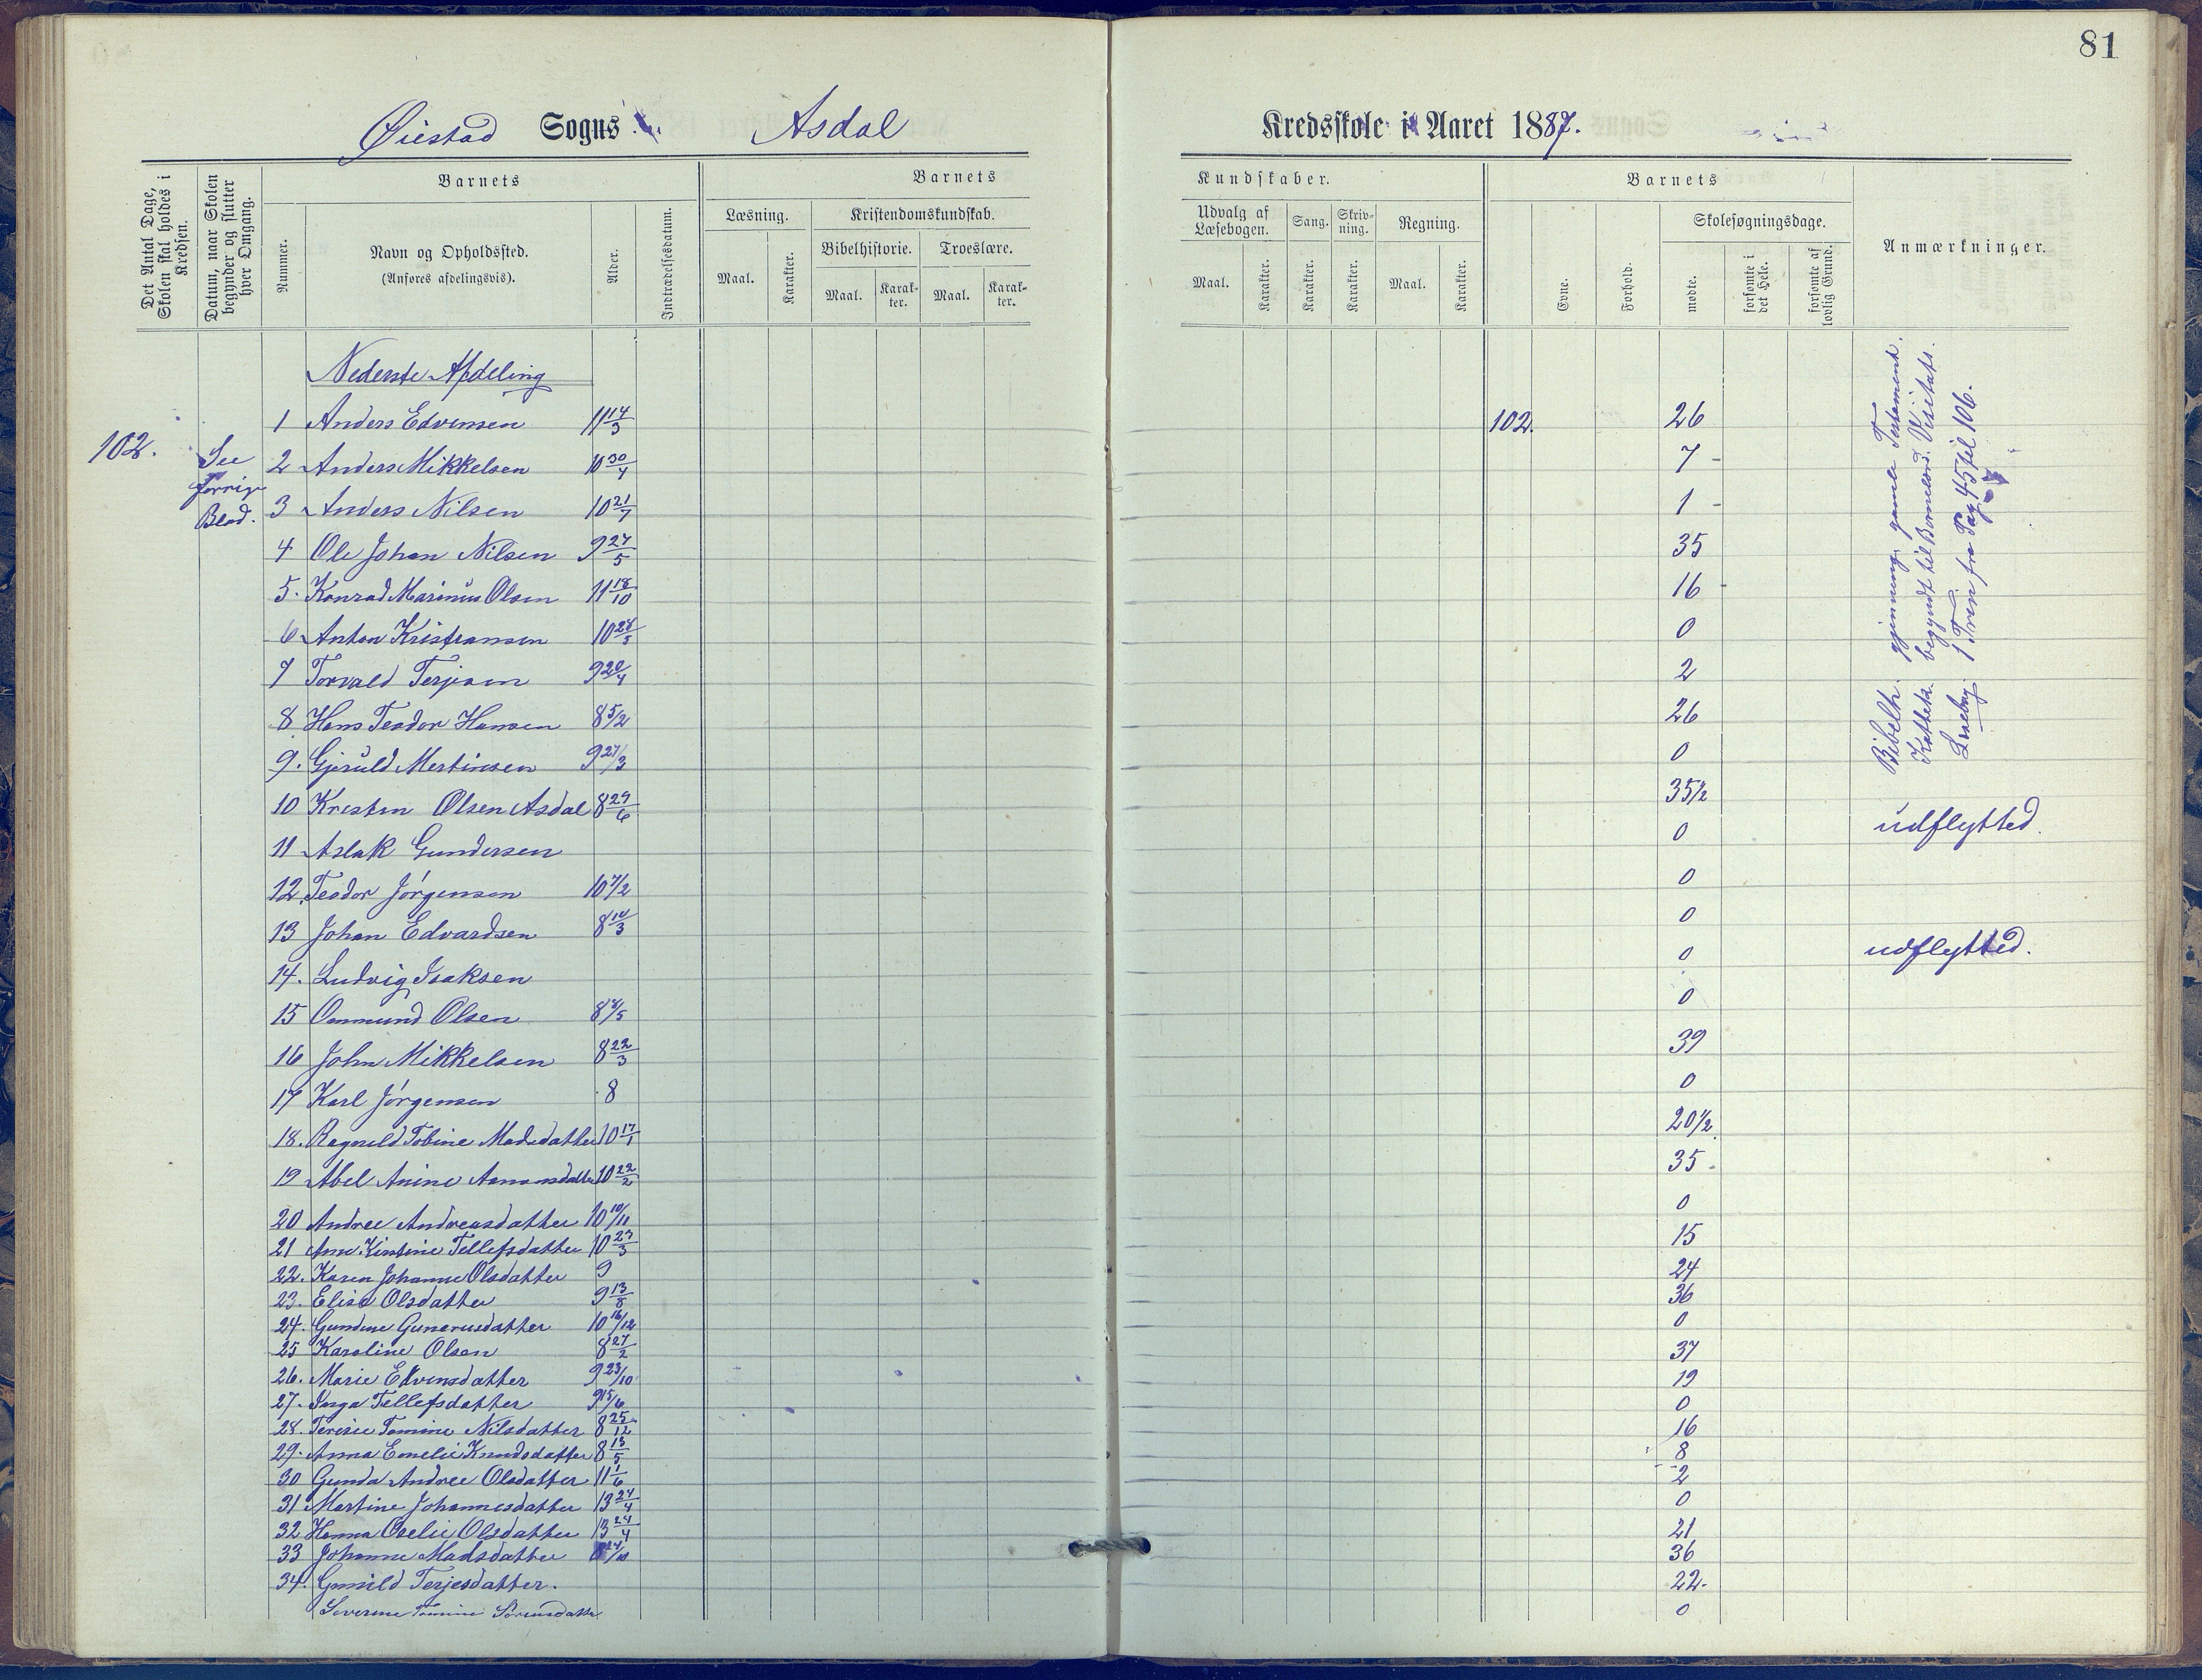 81
Øiestad Sogns Asdal Kredsskole i Aaret 1887.
Det Antal Dage, Skolen skal holdes i Kredsen.
Datum, naar Skolen begynder og slutter hver Omgang.
Barnets
Nummer.
Navn og Opholdssted.
(Anføres afdelingsvis).
Alder.
Indtrædelsesdatum.
Barnets
Læsning.
Maal.
Karakter.
Kristendomskundskab.
Bibelhistorie.
Maal.
Karakter.
Troeslære.
Maal.
Karakter.
Kundskaber.
Udvalg af Læsebogen.
Maal.
Karakter.
Sang.
Karakter.
Skrivning.
Karakter.
Regning.
Maal.
Karakter.
Barnets
Evne.
Forhold.
Skolesøgningsdage.
mødte.
forsømte i det Hele.
forsømte af lovlig Grund.
Anmærkninger.
Nederste Afdeling
102.
See
forrige
Blad.
1 Anders Edvinsen 11 14/3 102. 26
2 Anders Mikkelsen 10 30/4 7 -
3 Anders Nilsen 10 21/7 1 -
4 Ole Johan Nilsen 9 27/5 35
5. Konrad Marinius Olsen 11 18/10 16 -
6 Anton Kristiansen 10 28/5 0
7 Torvald Terjesen 9 20/4 2
8 Hans Teodor Hansen 8 5/2 26
9. Gjeruld Mertinsen 9 27/3 0
10 Kristen Olsen Asdal 8 29/6 35 1/2
11 Aslak Gundersen 0 udflytted.
12. Teodor Jørgensen 10 7/2 0
13 Johan Edvardsen 8 10/3 0
14. Ludvig Isaksen 0 udflytted.
15 Ommund Olsen 8 8/5 0
16 John Mikkelsen 8 22/3 39
17 Karl Jørgensen 8 0
18. Ragnild Tobine Madsdatter 10 17/1 20 1/2
19 Abel Anine Aamonsdatter 10 22/2 35
20 Andree Andreasdatter 10 10/11 0
21 Ane Kirstine Tellefsdatter 10 23/3 15
22. Karen Johanne Olsdatter 9 24
23. Elise Olsdatter 9 13/8 36
24. Gundine Gunerusdatter 10 16/12 0
25 Karoline Olsen 8 27/2 37
26. Marie Edvinsdatter 9 23/10 19
27. Inga Tellefsdatter 9 15/6 0
28. Teresie Tomine Nilsdatter 8 25/12 16
29. Anna Emelie Knudsdatter 8 13/5 8
30 Gunda Andree Olsdatter 11 1/6 2
31 Martine Johannesdatter 13 24/4 0
32 Hanna Oselie Olsdatter 13 24/4 21
33 Johanne Madsdatter 8 24/10 36
34. Gunild Terjesdatter. 22-
Severine Tomine Sørensdatter 0
Bibelh. gjennemg. gamle Testament.
Katteka. begyndt til Børnelærd. Visitats.
Læsebog. 1 Trin fra Pag 45 til 106.